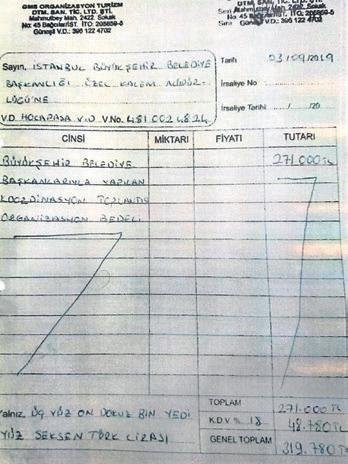 GMS ORGANİZASYON TURİZM
OTM. SAN. TİC. LTD. ŞTİ.
Mahmutbey Mah. 2422. Sokak
No: 45 Bağcılar/İST. İTO: 205659-5
Güneşli V.D. 396 122 4702
Seri
Sıra
Mahmutbey Mah. 2422. Sokak
No: 45 Bağcılar/İST. İTO: 205659-5
Güneşli V.D. 396 122 4702
Sayın, İSTANBUL BÜYÜKŞEHİR BELEDİYE
BAŞKANLIĞI ÖZEL KALEM MÜDÜR-
LÜĞÜNE
V.D. HOCAPAŞA V.D V.No. 481 002 4824
Tarih 23/09/2019
İrsaliye No
İrsaliye Tarihi / /20
CİNSİ MİKTARI FİYATI TUTARI
BÜYÜKŞEHİR BELEDİYE 271.000TL
BAŞKANLARIYLA YAPILAN
KOORDİNASYON TOPLANTISI
ORGANİZASYON BEDELİ
Yalnız, ÜÇ YÜZ ON DOKUZ BİN YEDİ
YÜZ SEKSEN TÜRK LİRASI
TOPLAM 271.000TL
K.D.V % 18 48.780TL
GENEL TOPLAM 319.780TL